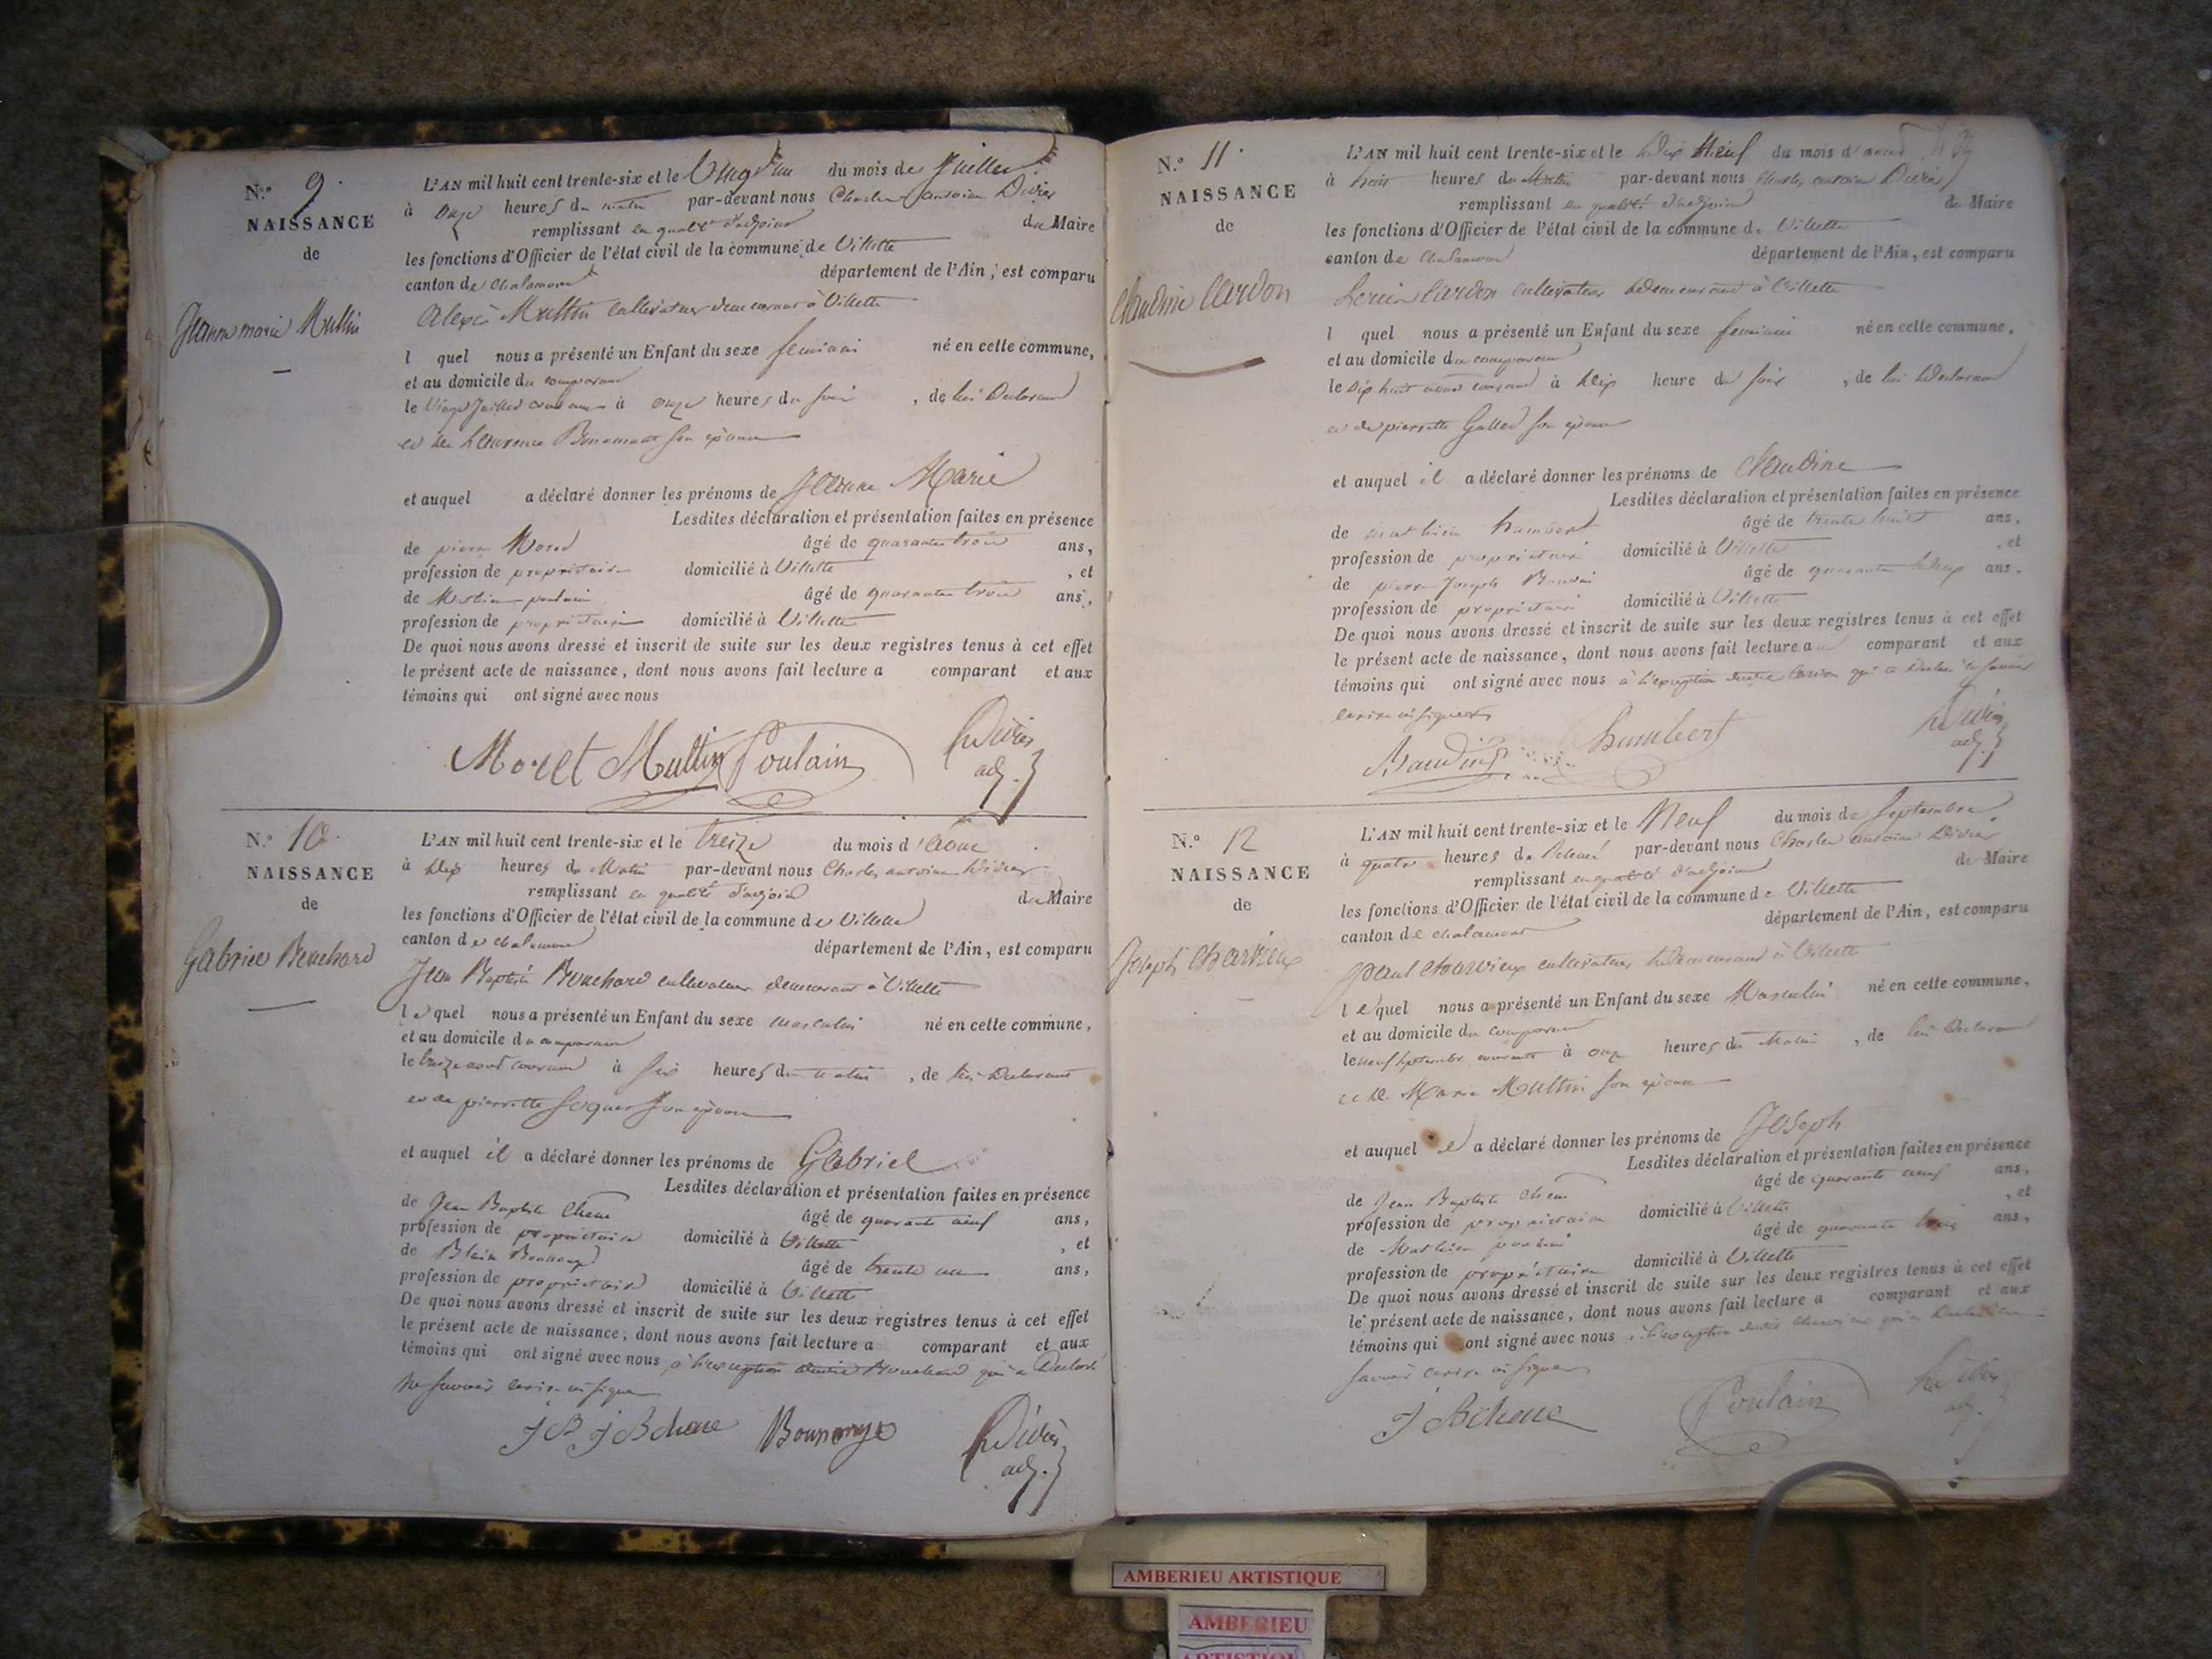 N.o 9.
NAISSANCE
de
Jeanne marie Multin
L'AN mil huit cent trente-six et le Vingt un du mois de Juillet
à onze heures du matin par-devant nous Charles antoine Divier
remplissant en qualité d'adjoint du Maire
les fonctions d'Officier de l'état civil de la commune de Villette
canton de chalamont département de l'Ain, est comparu
Alexis Multin cultivateur demeurant à Villette
l quel nous a présenté un Enfant du sexe feminin né en cette commune,
et au domicile du comparant
le Vingt Juillet courant à onze heures du soir, de lui Declarant
et de Laurence son épouse
et auquel a déclaré donner les prénoms de Jeanne Marie
Lesdites déclaration et présentation faites en présence
de pierre Moret âgé de quarante trois ans,
profession de propriétaire domicilié à Villette, et
de Mathieu poulain âgé de quarante trois ans,
profession de propriétaire domicilié à Villette
De quoi nous avons dressé et inscrit de suite sur les deux registres tenus à cet effet
le présent acte de naissance, dont nous avons fait lecture a comparant et aux
témoins qui ont signé avec nous
Moret Multin Poulain Divier
adj.
N.o 10.
NAISSANCE
de
Gabriel Bouchard
L'AN mil huit cent trente-six et le treize du mois d'Aout
à dix heures du Matin par-devant nous Charles antoine Divier
remplissant en qualité d'adjoint du Maire
les fonctions d'Officier de l'état civil de la commune de Villette
canton de chalamont département de l'Ain, est comparu
Jean Baptiste Bouchard cultivateur demeurant à Villette
le quel nous a présenté un Enfant du sexe masculin né en cette commune,
et au domicile du comparant
le treize aout courant à six heures du matin, de lui Declarant
et de pierrette son épouse
et auquel il a déclaré donner les prénoms de Gabriel
Lesdites déclaration et présentation faites en présence
de Jean Baptiste Chene âgé de quarante neuf ans,
profession de propriétaire domicilié à Villette, et
de âgé de trente un ans,
profession de propriétaire domicilié à Villette
De quoi nous avons dressé et inscrit de suite sur les deux registres tenus à cet effet
le présent acte de naissance, dont nous avons fait lecture a comparant et aux
témoins qui ont signé avec nous à l'exception dudit Bouchard qui a Declaré
ne savoir ecrire ni signer
J B J B chene Divier
adj.
N.o 11.
NAISSANCE
de
Claudine Cardon
L'AN mil huit cent trente-six et le dix Neuf du mois d'aout
à huit heures du Matin par-devant nous Charles antoine Divier
remplissant en qualité d'adjoint du Maire
les fonctions d'Officier de l'état civil de la commune de Villette
canton de chalamont département de l'Ain, est comparu
Cardon cultivateur demeurant à Villette
l quel nous a présenté un Enfant du sexe feminin né en cette commune,
et au domicile du comparant
le dix huit aout courant à dix heure du soir, de lui Declarant
et de pierrette Gallet son épouse
et auquel il a déclaré donner les prénoms de Claudine
Lesdites déclaration et présentation faites en présence
de mathieu humbert âgé de trente huit ans,
profession de propriétaire domicilié à Villette, et
de pierre Joseph Baudin âgé de quarante deux ans,
profession de propriétaire domicilié à Villette
De quoi nous avons dressé et inscrit de suite sur les deux registres tenus à cet effet
le présent acte de naissance, dont nous avons fait lecture au comparant et aux
témoins qui ont signé avec nous à l'exception dudit Cardon qui a
ecrire ni signer
Baudin humbert Divier
adj.
N.o 12
NAISSANCE
de
Joseph Charvieux
L'AN mil huit cent trente-six et le Neuf du mois de Septembre
à quatre heures du par-devant nous Charles antoine Divier
remplissant en qualité d'adjoint du Maire
les fonctions d'Officier de l'état civil de la commune de Villette
canton de chalamont département de l'Ain, est comparu
paul Charvieux cultivateur demeurant à Villette
le quel nous a présenté un Enfant du sexe Masculin né en cette commune,
et au domicile du comparant
le neuf septembre courant à onze heures du Matin, de lui Declarant
et de Marie Multin son épouse
et auquel il a déclaré donner les prénoms de Joseph
Lesdites déclaration et présentation faites en présence
de Jean Baptiste Chene âgé de quarante neuf ans,
profession de propriétaire domicilié à Villette, et
de Mathieu poulain âgé de quarante trois ans,
profession de propriétaire domicilié à Villette
De quoi nous avons dressé et inscrit de suite sur les deux registres tenus à cet effet
le présent acte de naissance, dont nous avons fait lecture a comparant et aux
témoins qui ont signé avec nous à l'exception dudit Charvieux qui a
savoir ecrire ni signer
J B chene Poulain Divier
adj.
AMBERIEU ARTISTIQUE
AMBERIEU
ARTISTIQUE